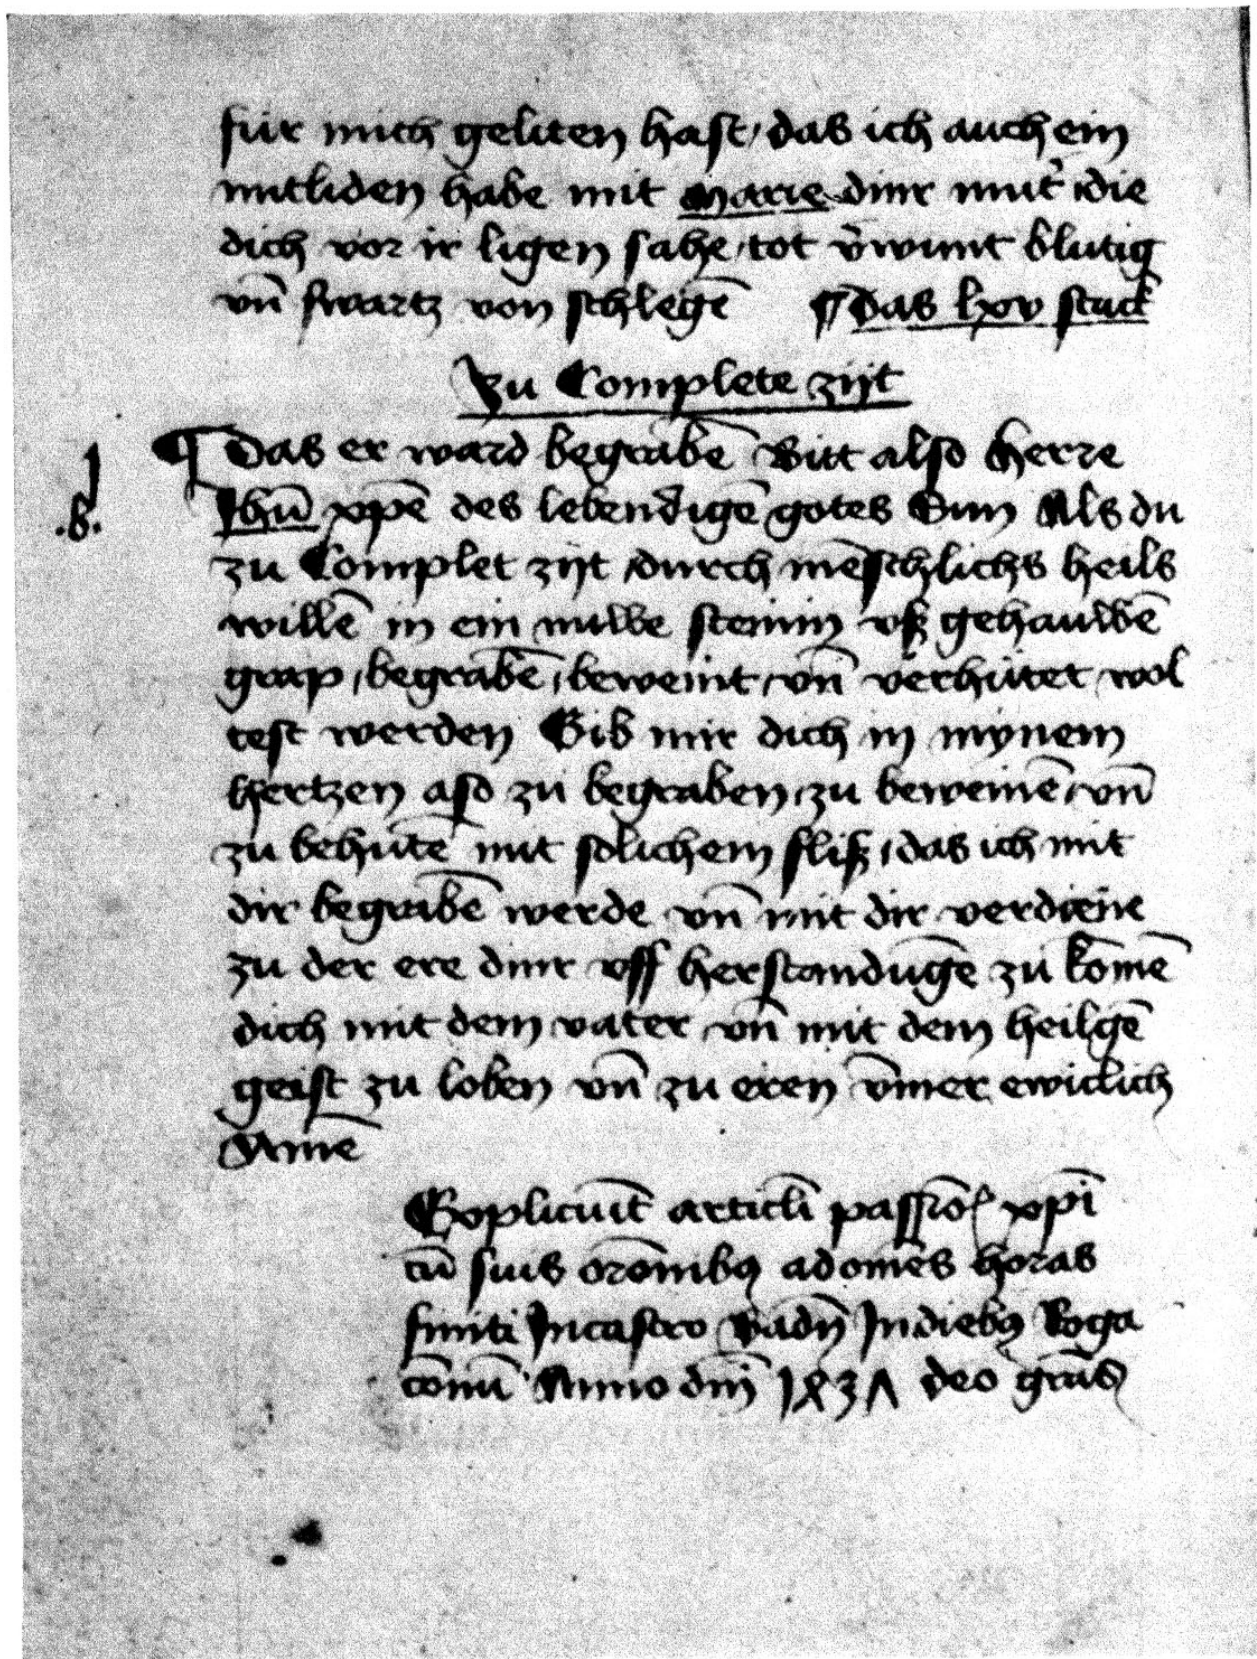 für mich geliten hast / das ich auch ein
mitliden habe mit Marie diner mut̄ / die
dich vor ir ligen sahe / tot v̄wunt blutig
vn̄ swartz von schlegē ¶ Das lxv stuck
Zu Complete zijt
¶ Das er ward begrabē Bitt also herre
.b. Jhū xpē des lebendigē gotes Sun Als du
zu Complet zijt / durch mēschlichs heils
willē in ein nuwe steinin vß gehauwē
grap / begrabē / beweint / vn̄ verhütet / wol
test werden Gib mir dich in mynem
hertzen aso zu begraben / zu beweinē / vn̄
zu behütē mit solichem fliß / das ich mit
dir begrabē werde vn̄ mit dir verdiene
zu der ere diner vff herstandūgē zu komē
dich mit dem vater vn̄ mit dem heilgē
geist zu loben vn̄ zu eren ȳmer ewiclich
Amē
Explicuīt articl̄i passiōis xpī
cū suis orōnibꝰ ad om̄es horas
finiti In castro Badn̄ In diebꝰ Roga
cōnū Anno dn̄j 1ꝝ3Λ deo grās